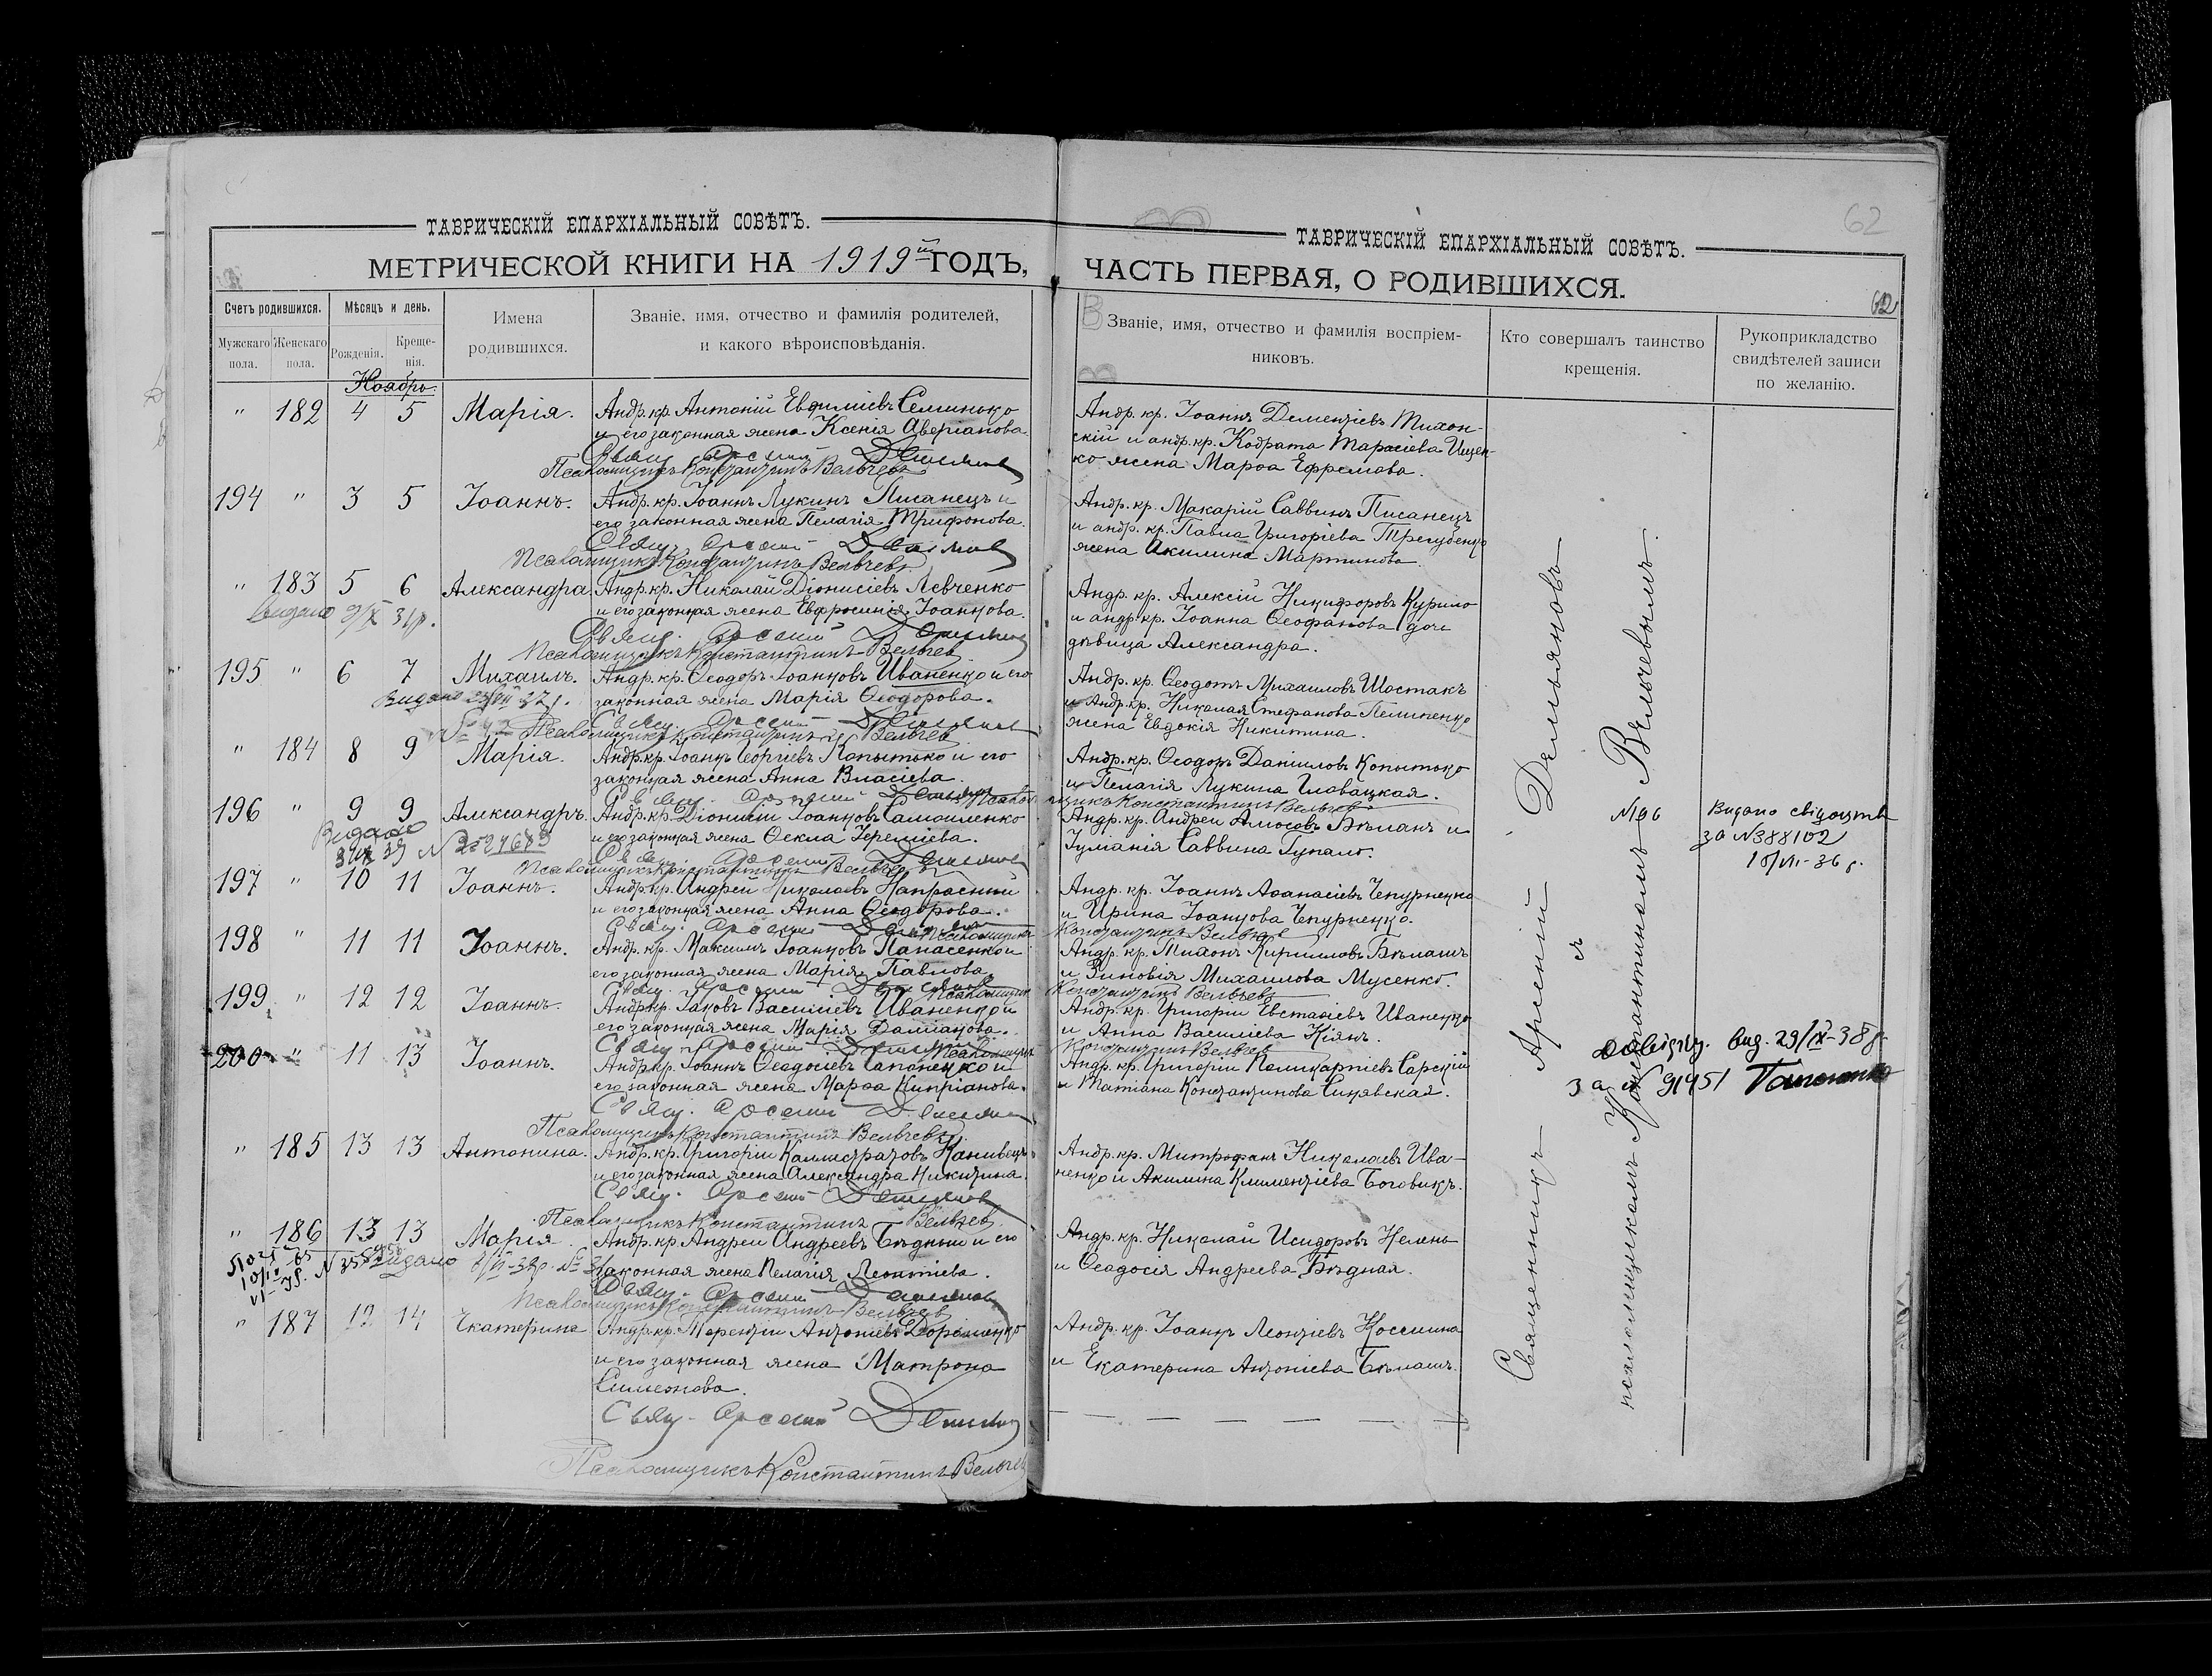 ТАВРИЧЕСКІЙ ЕПАРХІАЛЬНЫЙ СОВѢТЪ.
МЕТРИЧЕСКОЙ КНИГИ НА 1919й ГОДЪ,
Счетъ родившихся.
Мѣсяцъ и день.
Имена родившихся.
Званіе, имя, отчество и фамилія родителей,
и какого вѣроисповѣданія.
Мужскаго пола.
Женскаго пола.
Рожденія.
Крещенія.
Ноябрь
" 182 4 5 Марія. Андр. кр. Антоній Евфиміевъ Семинько
и его законная жена Ксенія Аверіанова.
Свящ. Арсеній Демьянов
Псаломщикъ Константинъ Вельчевъ
194 " 3 5 Іоаннъ. Андр. кр. Іоаннъ Лукинъ Писанецъ и
его законная жена Пелагія Трифонова.
Свящ. Арсеній Демьянов
Псаломщикъ Константинъ Вельчевъ
" 183 5 6 Александра. Андр. кр. Николай Діонисіевъ Левченко
и его законная жена Евфросинія Іоаннова.
Видано 9/X 31р.
Свящ. Арсеній Демьянов
Псаломщикъ Константинъ Вельчев
195 " 6 7 Михаилъ. Андр. кр. Ѳеодоръ Іоанновъ Иваненко и его
законная жена Марія Ѳеодорова.
Свящ. Арсеній Демьянов
Псаломщикъ Константинъ Вельчев
" 184 8 9 Марія. Андр. кр. Іоаннъ Георгіевъ Копытько и его
законная жена Анна Власіева.
Свящ. Арсеній Демьянов
196 " 9 9 Александръ. Андр. кр. Діонисій Іоанновъ Самоиленко
и его законная жена Ѳекла Іереміева.
Видано
Свящ. Арсеній Демьянов
Псаломщикъ Константинъ Вельчев
197 " 10 11 Іоаннъ. Андр. кр. Андрей Николаевъ Напрасный
и его законная жена Анна Ѳеодорова.
Свящ. Арсеній Демьянов Псаломщикъ
198 " 11 11 Іоаннъ. Андр. кр. Максимъ Іоанновъ Панасенко и
его законная жена Марія Павлова.
Свящ. Арсеній Демьянов Псаломщикъ
199 " 12 12 Іоаннъ. Андр. кр. Іаковъ Василіевъ Иваненко и
его законная жена Марія Даміанова.
Свящ. Арсеній Демьянов Псаломщикъ
200 " 11 13 Іоаннъ. Андр. кр. Іоаннъ Ѳеодосіевъ Сапоненко и
его законная жена Марѳа Кипріанова.
Свящ. Арсеній Демьянов
Псаломщикъ Константинъ Вельчевъ
" 185 13 13 Антонина. Андр. кр. Григорій Каллистратовъ Канивецъ
и его законная жена Александра Никитина.
Свящ. Арсеній Демьянов
Псаломщикъ Константинъ Вельчев
" 186 13 13 Марія. Андр. кр. Андрей Андреевъ Бѣдный и его
законная жена Пелагія Леонтіева.
Видано
Свящ. Арсеній Демьянов
Псаломщикъ Константинъ Вельчев
" 187 12 14 Екатерина Андр. кр. Терентій Антоніевъ Дорошенко
и его законная жена Матрона
Симеонова.
Свящ. Арсеній Демьянов
Псаломщикъ Константинъ Вельчев
62
ТАВРИЧЕСКІЙ ЕПАРХІАЛЬНЫЙ СОВѢТЪ.
ЧАСТЬ ПЕРВАЯ, О РОДИВШИХСЯ.
62
Званіе, имя, отчество и фамилія воспріемниковъ.
Кто совершалъ таинство крещенія.
Рукоприкладство свидѣтелей записи по желанію.
Андр. кр. Іоаннъ Дементіевъ Тихон-
скій и андр. кр. Кодрата Тарасіева Ищен-
ко жена Марѳа Ефремова.
Андр. кр. Макарій Саввинъ Писанецъ
и андр. кр. Павла Григоріева Трегубенко
жена Акилина Мартинова.
Андр. кр. Алексій Никифоровъ Курило
и андр. кр. Іоанна Ѳеофанова дочь
дѣвица Александра.
Андр. кр. Ѳеодотъ Михаиловъ Шостакъ
и Андр. кр. Николая Стефанова Пелипенко
жена Евдокія Никитина.
Андр. кр. Ѳеодоръ Даніиловъ Копытько
и Пелагія Лукина Главацкая.
Константинъ Вельчев
Андр. кр. Андрей Амосовъ Бѣланъ и
Іуліанія Саввина Гупало.
Андр. кр. Іоаннъ Аѳанасіевъ Чепурненко
и Ирина Іоаннова Чепурненко.
Константинъ Вельчев
Андр. кр. Тихонъ Кирилловъ Бѣлашъ
и Зиновія Михаилова Мусенко.
Константинъ Вельчевъ
Андр. кр. Григорій Евстаѳіевъ Иваненко
и Анна Василіева Кіянъ.
Константинъ Вельчев
Андр. кр. Григорій Поликарпіевъ Сарскій
и Татіана Константинова Синявская.
Андр. кр. Митрофанъ Николаевъ Ива-
ненко и Акилина Климентіева Боговикъ.
Андр. кр. Николай Исидоровъ Нелень
и Ѳеодосія Андреева Бѣдная.
Андр. кр. Іоаннъ Леонтіевъ Коссина
и Екатерина Антоніева Бѣлашъ.
Священникъ Арсеній Демьяновъ
съ
псаломщикомъ Константиномъ Вельчевымъ.
N196 Видано свідоцтв
за N388102
Вид. 29/IX-38р.
за N 91451